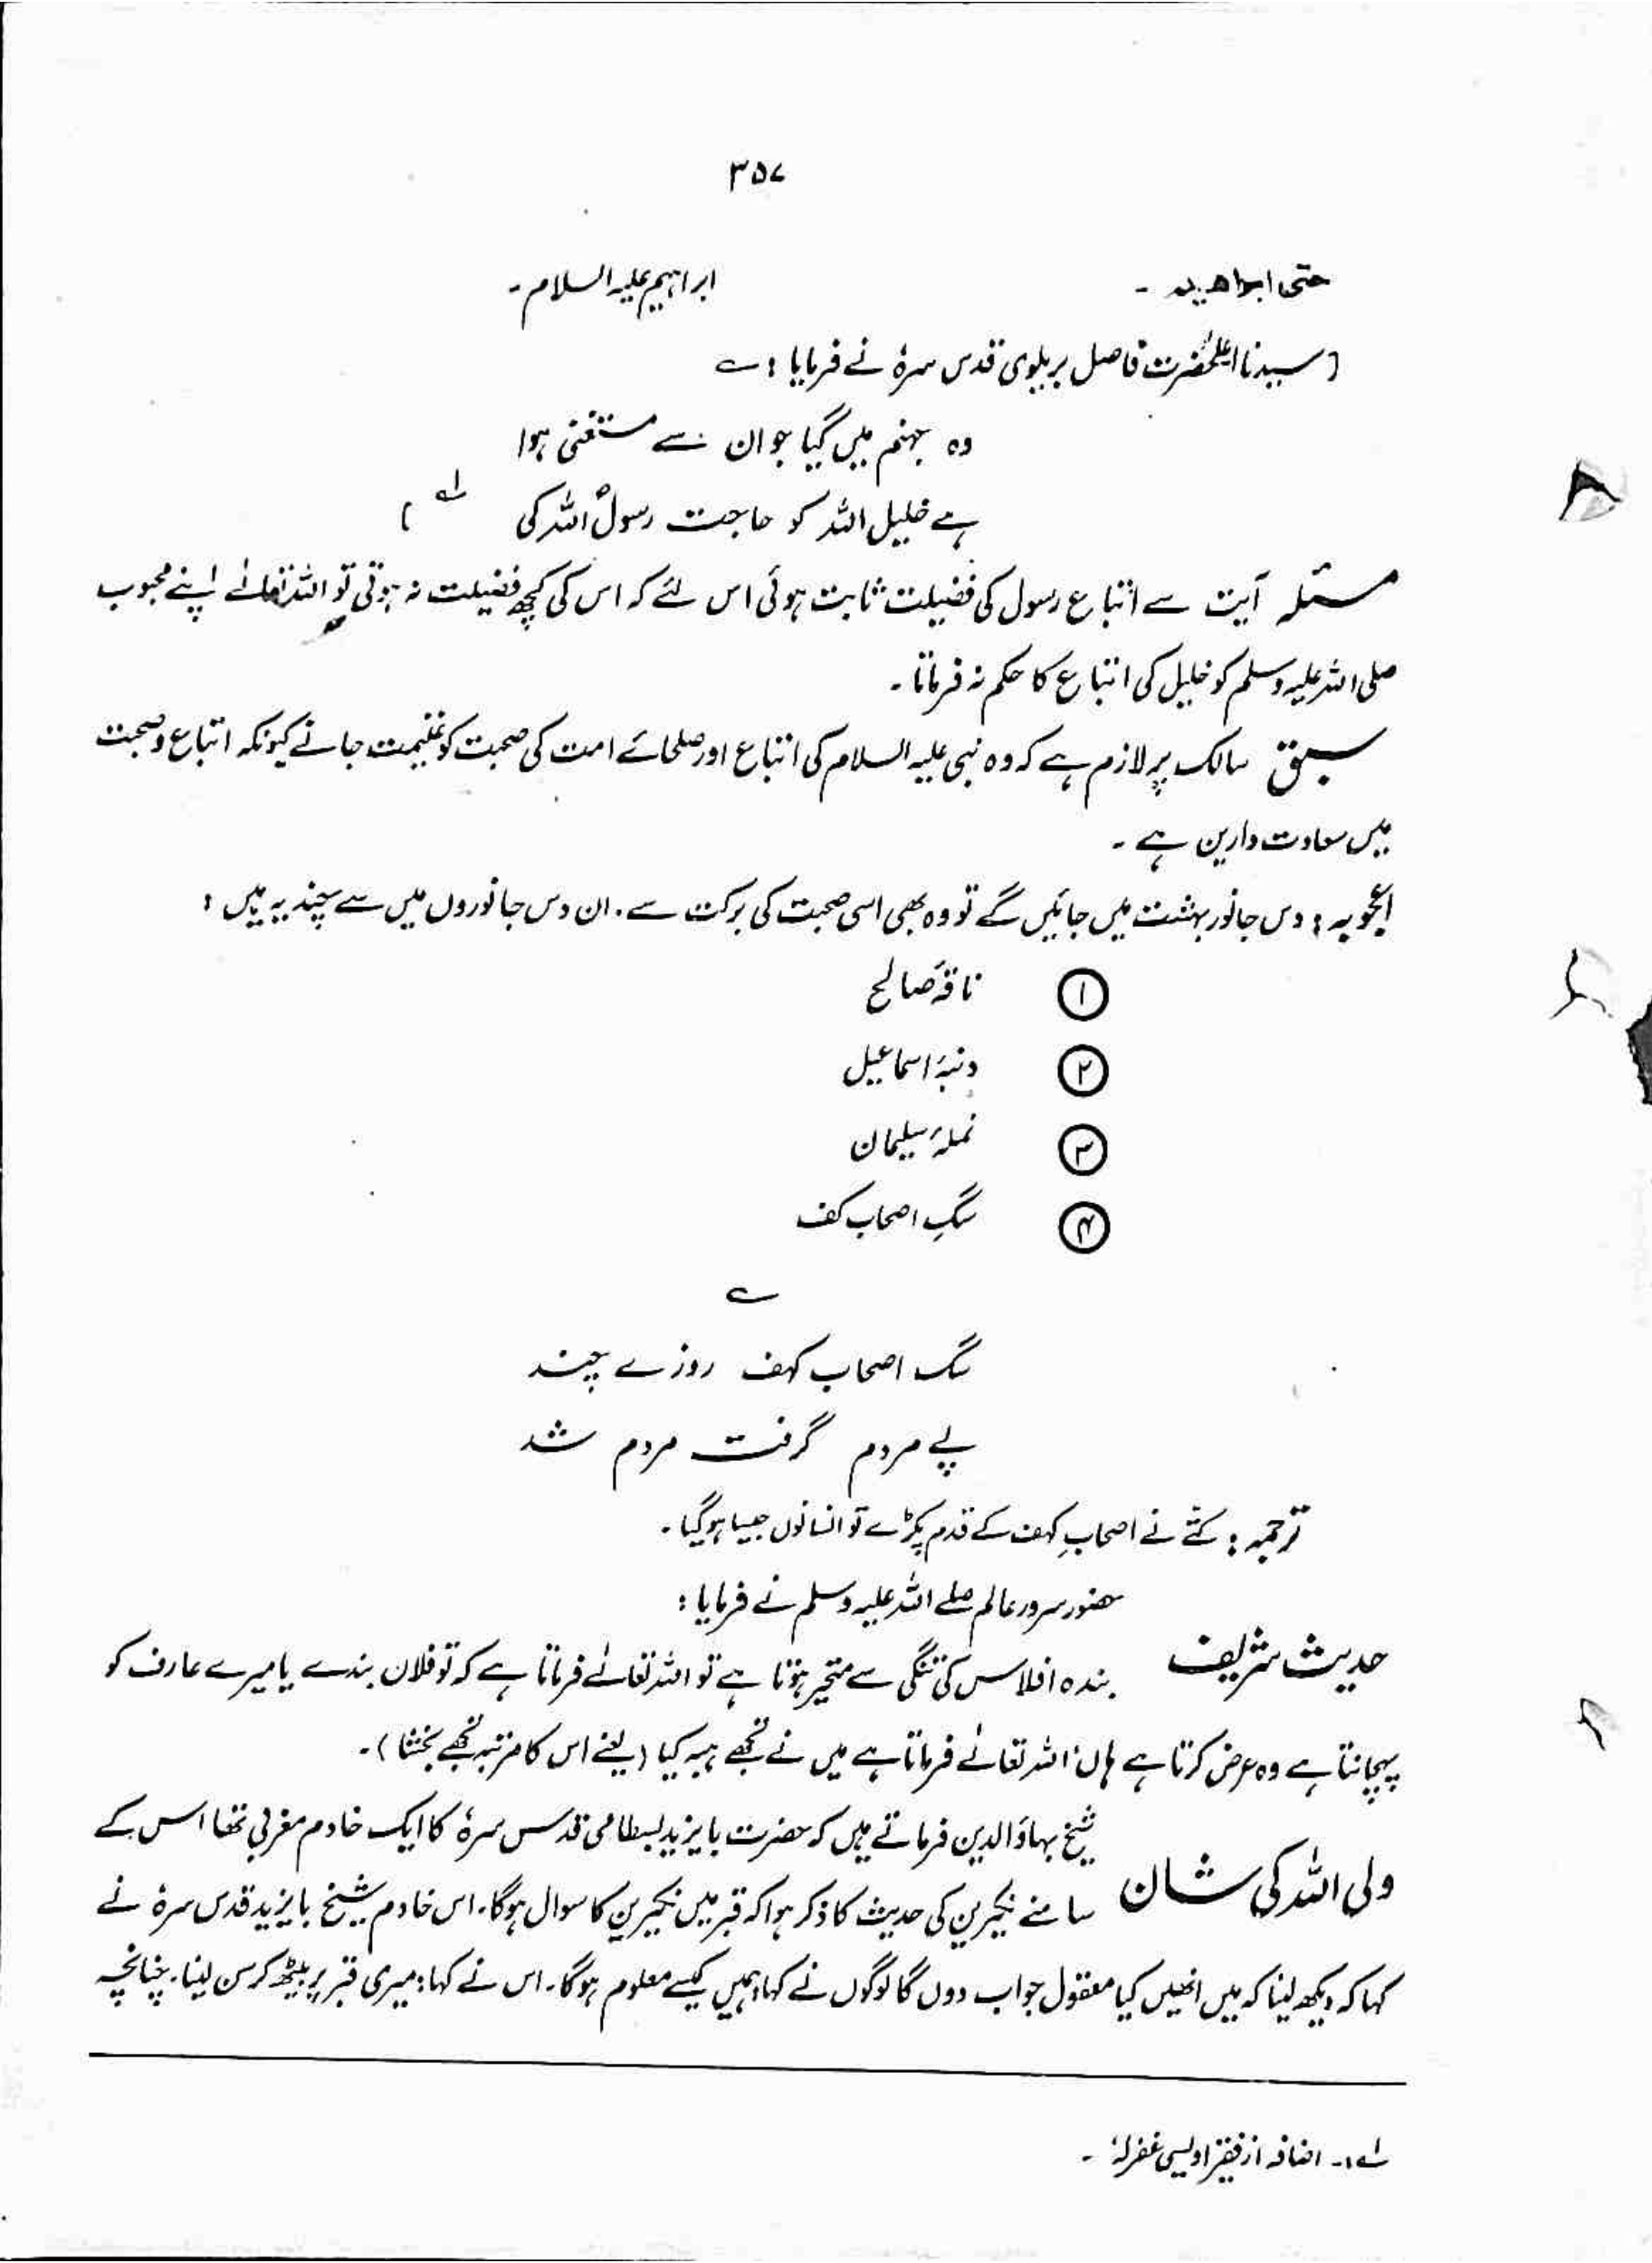 ۳۵۷
حتی ابراھیم ۔ ابراہیم علیہ السلام ۔
(سیدنا اعلیٰحضرت فاضل بریلوی قدس سرہٗ نے فرمایا : ؎
وہ جہنم میں گیا جو ان سے مستغنی ہوا
ہے خلیل اللہ کو حاجت رسولؐ اللہ کی لہ )
مسئلہ آیت سے اتباع رسول کی فضیلت ثابت ہوئی اس لئے کہ اس کی کچھ فضیلت نہ ہوتی تو اللہ تعالےٰ اپنے محبوب
صلی اللہ علیہ وسلم کو خلیل کی اتباع کا حکم نہ فرماتا ۔
سبق سالک پر لازم ہے کہ وہ نبی علیہ السلام کی اتباع اور صلحائے امت کی صحبت کو غنیمت جانے کیونکہ اتباع و صحبت
میں سعادت دارین ہے ۔
اعجوبہ : دس جانور بہشت میں جائیں گے تو وہ بھی اسی صحبت کی برکت سے ۔ ان دس جانوروں میں سے چند یہ ہیں :
۱ ناقۂ صالح
۲ دنبۂ اسماعیل
۳ نملۂ سلیمان
۴ سگِ اصحاب کف
؎
سگ اصحاب کہف روزے چند
پے مردم گرفت مردم شد
ترجمہ : کتے نے اصحابِ کہف کے قدم پکڑے تو انسانوں جیسا ہو گیا ۔
حضور سرور عالم صلے اللہ علیہ وسلم نے فرمایا :
حدیث شریف بندہ افلاس کی تنگی سے متحیر ہوتا ہے تو اللہ تعالےٰ فرماتا ہے کہ تو فلاں بندے یا میرے عارف کو
پہچانتا ہے وہ عرض کرتا ہے ہاں ۔ اللہ تعالےٰ فرماتا ہے میں نے تجھے ہبہ کیا (یعنے اس کا مرتبہ تجھے بخشا ) ۔
شیخ بہاؤ الدین فرماتے ہیں کہ حضرت بایزید بسطامی قدس سرہٗ کا ایک خادم مغربی تھا اس کے
ولی اللہ کی شان سامنے نکیرین کی حدیث کا ذکر ہوا کہ قبر میں نکیرین کا سوال ہوگا ۔ اس خادم شیخ بایزید قدس سرہٗ نے
کہا کہ دیکھ لینا کہ میں انھیں کیا معقول جواب دوں گا لوگوں نے کہا : ہمیں کیسے معلوم ہوگا ۔ اس نے کہا : میری قبر پر بیٹھ کر سن لینا ۔ چنانچہ
لہ ۔ اضافہ از فقیر اویسی غفرلہٗ ۔